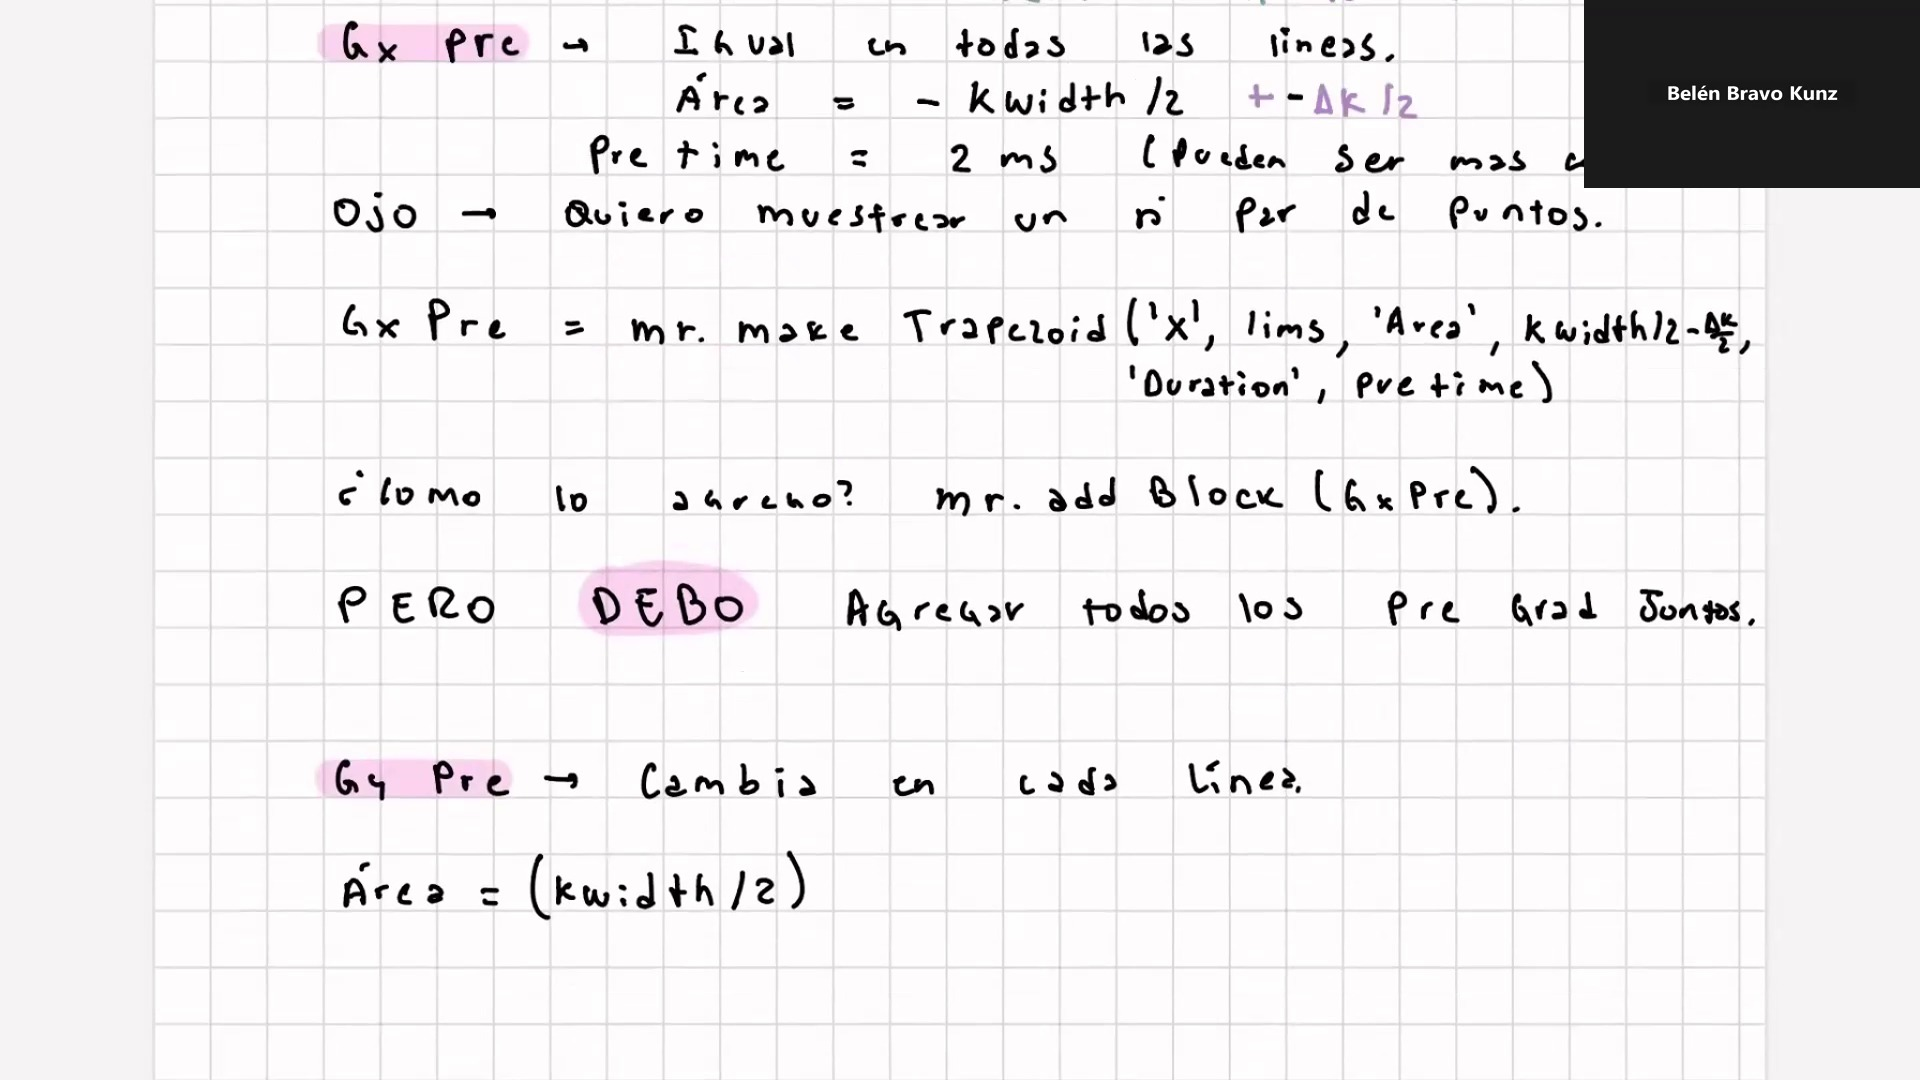 Gx Pre → Igual en todas las líneas.
Área = - Kwidth/2 +-ΔK/2
Pre time = 2 ms (Pueden ser mas
Belén Bravo Kunz
Ojo → Quiero muestrear un n° Par de Puntos.
Gx Pre = mr. make Trapezoid ('X', lims, 'Area', Kwidth/2-ΔK/2,
'Duration', Pre time)
¿Como lo agrego? mr. add Block (GxPre).
PERO DEBO Agregar todos los Pre Grad Juntos.
Gy Pre → Cambia en cada Línea.
Área = (Kwidth/2)